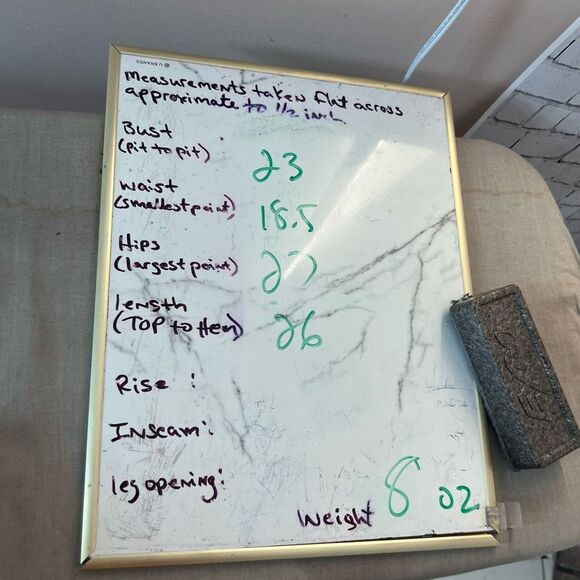 U BRANDS
measurements taken flat across
approximate to 1/2 inch
Bust
(pit to pit)
23
waist
(smallest point)
18.5
Hips
(largest point)
length
(TOP to Hem)
26
Rise :
Inseam:
leg opening:
Weight 8 oz
EXPO